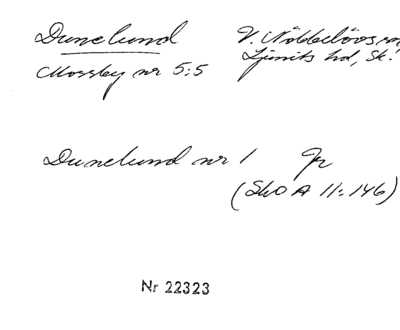 Dunelund V. Nöbbelövs sn,
Mossby nr 5:5 Ljunits hd, Sk.
Dunelund nr 1 Jr
(SkO A 11:146)
Nr 22323